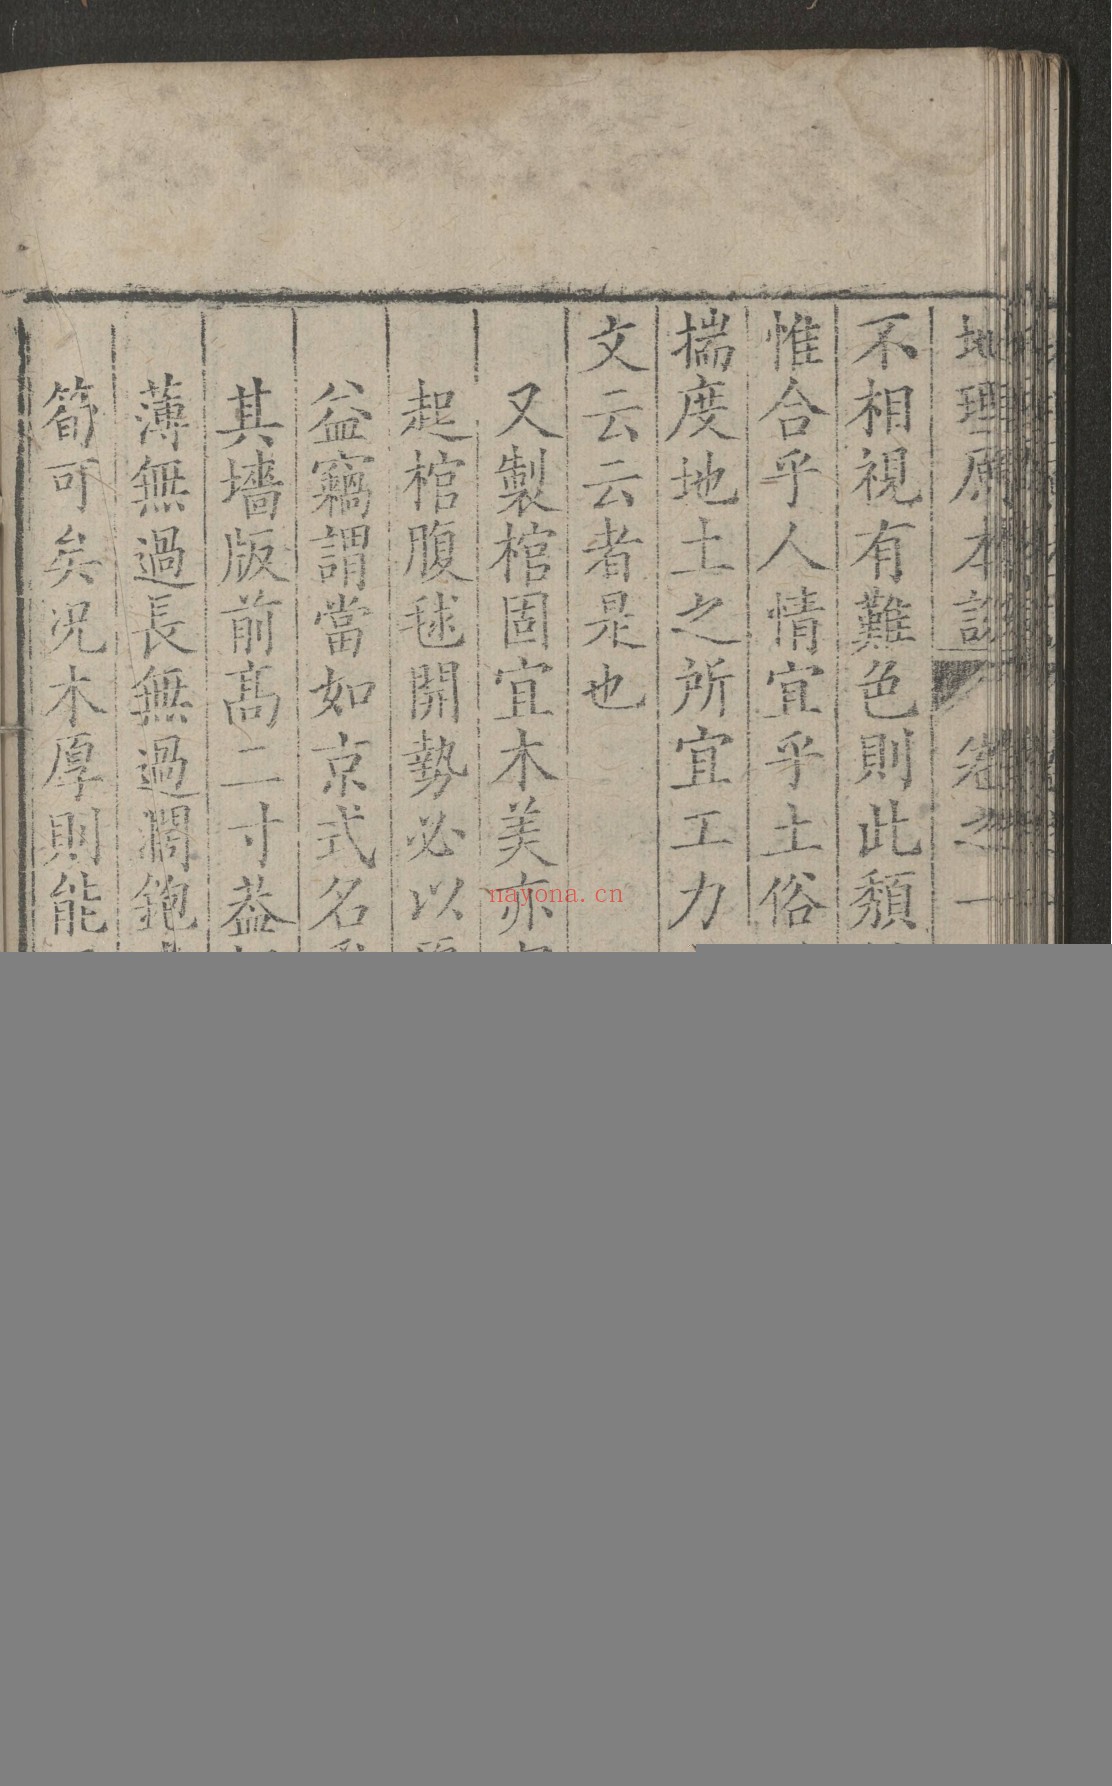 地理原本說 卷之一
不相視有難色則此頹
惟合乎人情宜乎土俗
揣度地土之所宜工力
文云云者是也
又製棺固宜木美亦
起棺腹毬開勢必以
益竊謂當如京式名
其墻版前高二寸葢
薄無過長無過濶鉋
筍可矣况木厚則能
nayona.cn